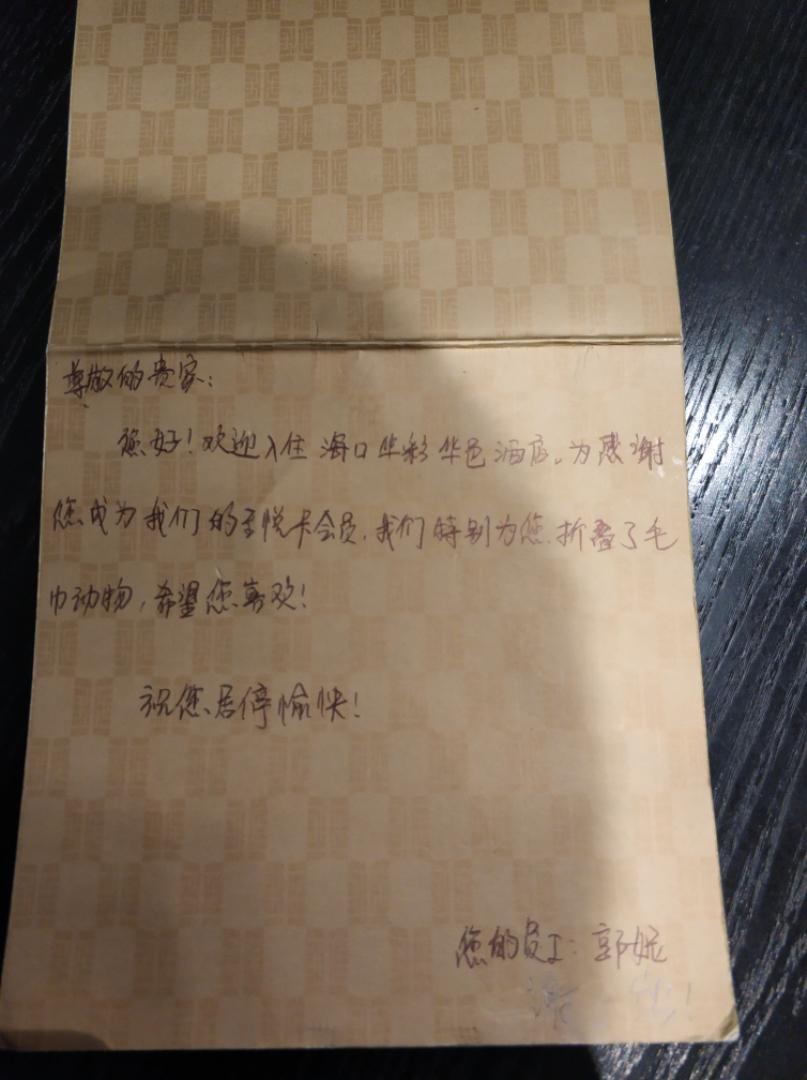 尊敬的贵宾：
您好！欢迎入住海口华彩华邑酒店。为感谢
您成为我们的至悦卡会员，我们特别为您折叠了毛
巾动物，希望您喜欢！
祝您居停愉快！
您的员工：郭妮